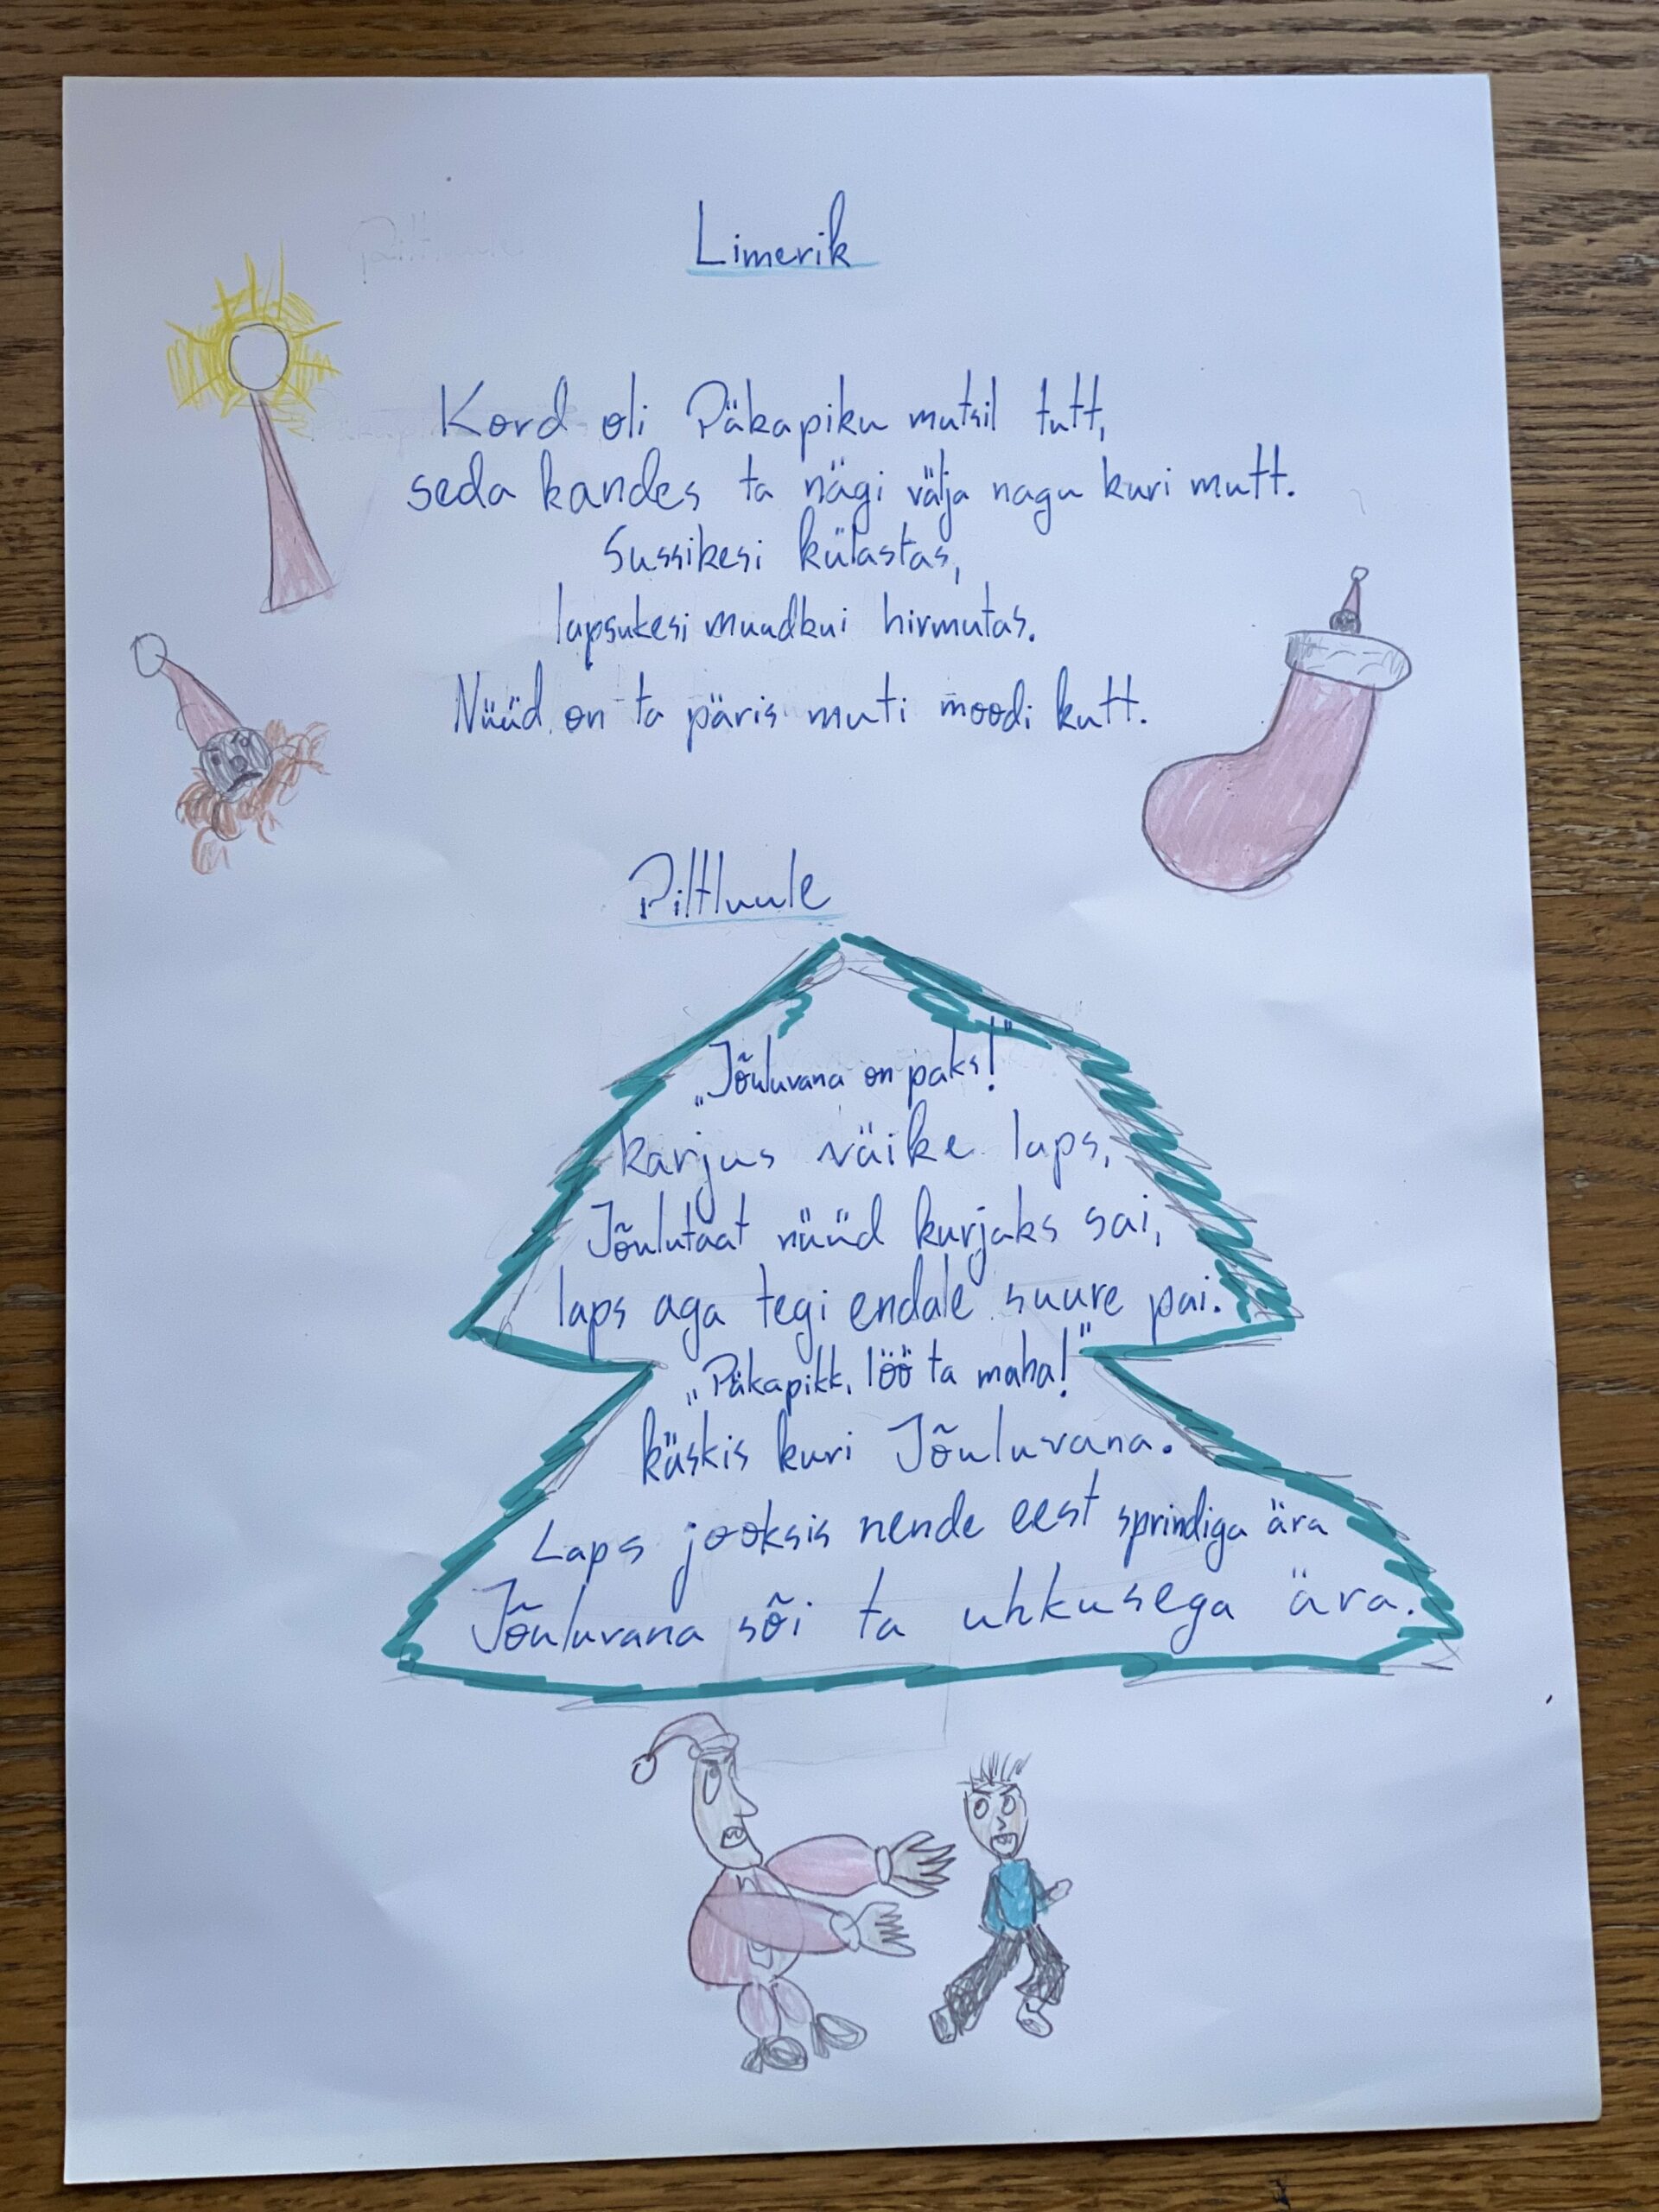 Limerik
Kord oli Päkapiku mutsil tutt,
seda kandes ta nägi välja nagu kuri mutt.
Sussikesi külastas,
lapsukesi muudkui hirmutas.
Nüüd on ta päris muti moodi kutt.
Piltluule
„Jõuluvana on paks!"
karjus väike laps,
Jõulutaat nüüd kurjaks sai,
laps aga tegi endale suure pai.
„Päkapikk, löö ta maha!"
käskis kuri Jõuluvana.
Laps jooksis nende eest sprindiga ära
Jõuluvana sõi ta uhkusega ära.